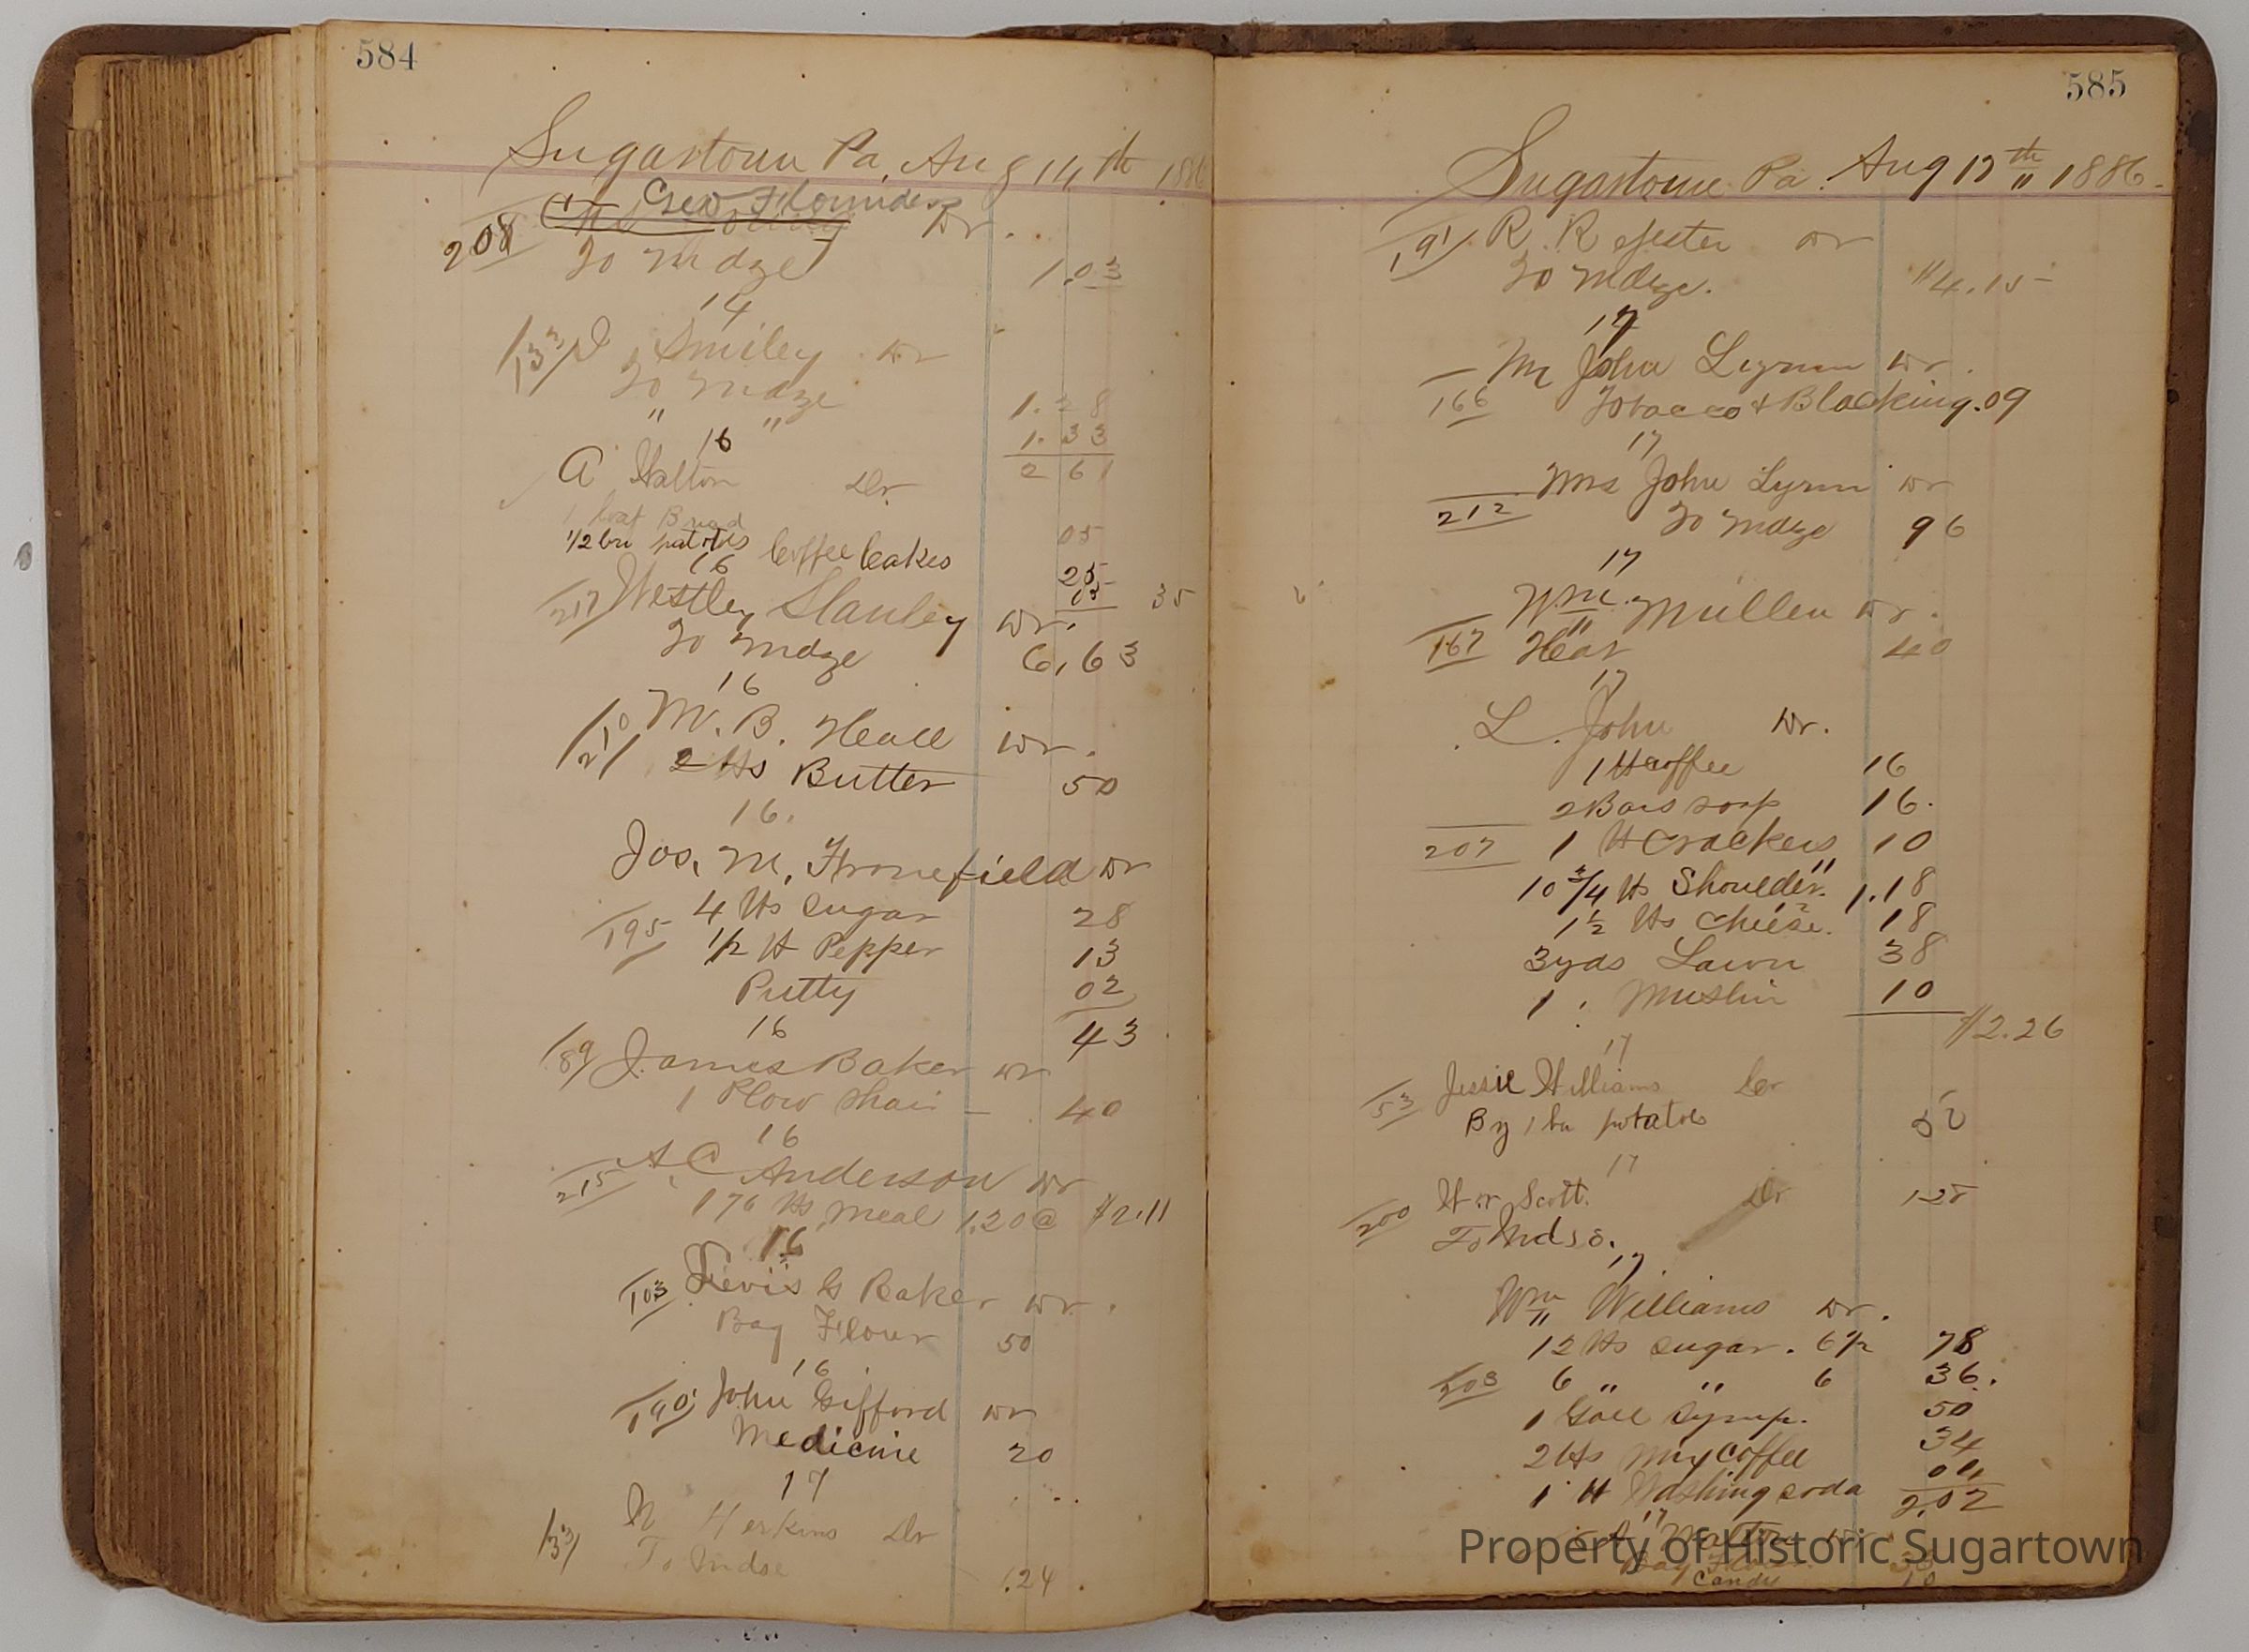 584
Sugartown Pa, Aug 14th 1886
Geo Flounders Dr.
208
To Mdze 1.03
14
133 Smiley Dr
To Mdze 1.28
" " 1.33
2 61
16
A Walton Dr
1 loaf Bread 05
1/2 bu potatoes 25
Coffee Cakes 05 35
16
217 Westley Stanley Dr.
To Mdze 6,63
16
210 M. B. Heall Dr.
2 lbs Butter 50
16.
Jos. M. Fronefield Dr
195 4 lbs Sugar 28
1/2 lb Pepper 13
Putty 02
43
16
189 James Baker Dr
1 Plow Shair — 40
16
215 A C Anderson Dr
176 lbs Meal 1.20@ $2.11
16
103 Levis G Baker Dr.
Bag Flour 50
16
190 John Gifford Dr
Medicine 20
17
133 N Herkins Dr
To Mdse .24
585
Sugartown Pa. Aug 17th 1886.
191 R. R Jester Dr
To Mdze. $4.15
17
Mr John Lynn Dr.
166 Tobacco & Blacking .09
17
Mrs John Lynn Dr
212 To Mdze 96
17
Wm. Mullen Dr.
167 Hat 40
17
L. John Dr.
1 lb Coffee 16
2 Bars soap 16.
207 1 lb Crackers 10
10 3/4 lbs Shoulder " 1.18
1 1/2 lbs Cheese. 12 18
3 yds Lawn 38
1 " Muslin 10
$2.26
17
153 Jessie Williams Cr
By 1 bu potatoes 50
17
200 Wm Scott. Dr 125
To Mdse.
17
Wm Williams Dr.
12 lbs Sugar. 6 1/2 78
203 6 " " 6 36.
1 Gall Syrup. 50
2 lbs Coffee 34
1 lb Washing soda 04
2.02
17
Bag Flour
Candy 10
Property of Historic Sugartown